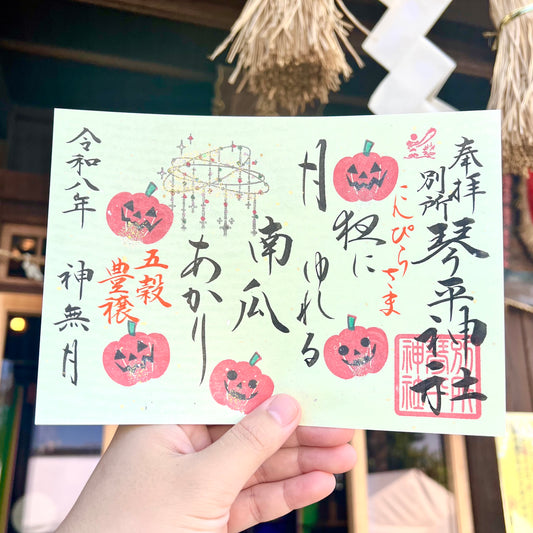 奉拝
別所
琴平神社
こんぴらさま
月夜に
ゆれる
南瓜
あかり
五穀
豊穣
令和八年
神無月